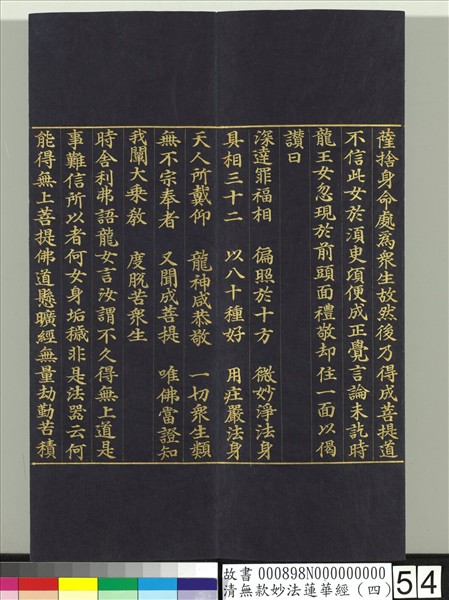 薩捨身命處為衆生故然後乃得成菩提道
不信此女於湏臾頃便成正覺言論未訖時
龍王女忽現於前頭面禮敬却住一面以偈
讃曰
深達罪福相 徧照於十方 微妙淨法身
具相三十二 以八十種好 用莊嚴法身
天人所戴仰 龍神咸恭敬 一切衆生類
無不宗奉者 又聞成菩提 唯佛當證知
我闡大乘教 度脫苦衆生
時舍利弗語龍女言汝謂不久得無上道是
事難信所以者何女身垢穢非是法器云何
能得無上菩提佛道懸曠經無量劫勤苦積
故書 000898N000000000
清無款妙法蓮華經(四)
54